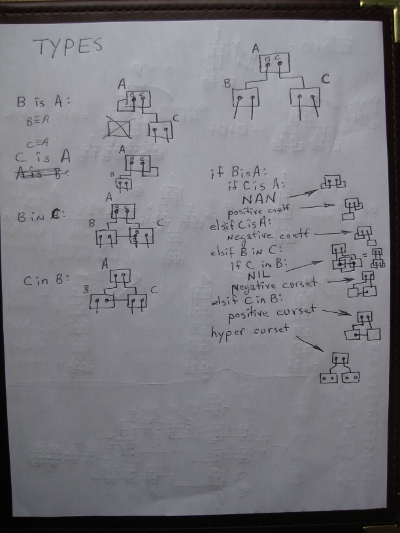 TYPES
A
B C
B C
B is A:
B≡A
A
B C
C
C≡A
C is A
A is B
A
B C
B
B in C:
A
B C
C in B:
A
B C
if B is A:
if C is A:
NAN
positive coself
elsif C is A:
negative coself
elsif B in C:
if C in B:
NIL
=
negative corset
elsif C in B:
positive curset
hyper curset